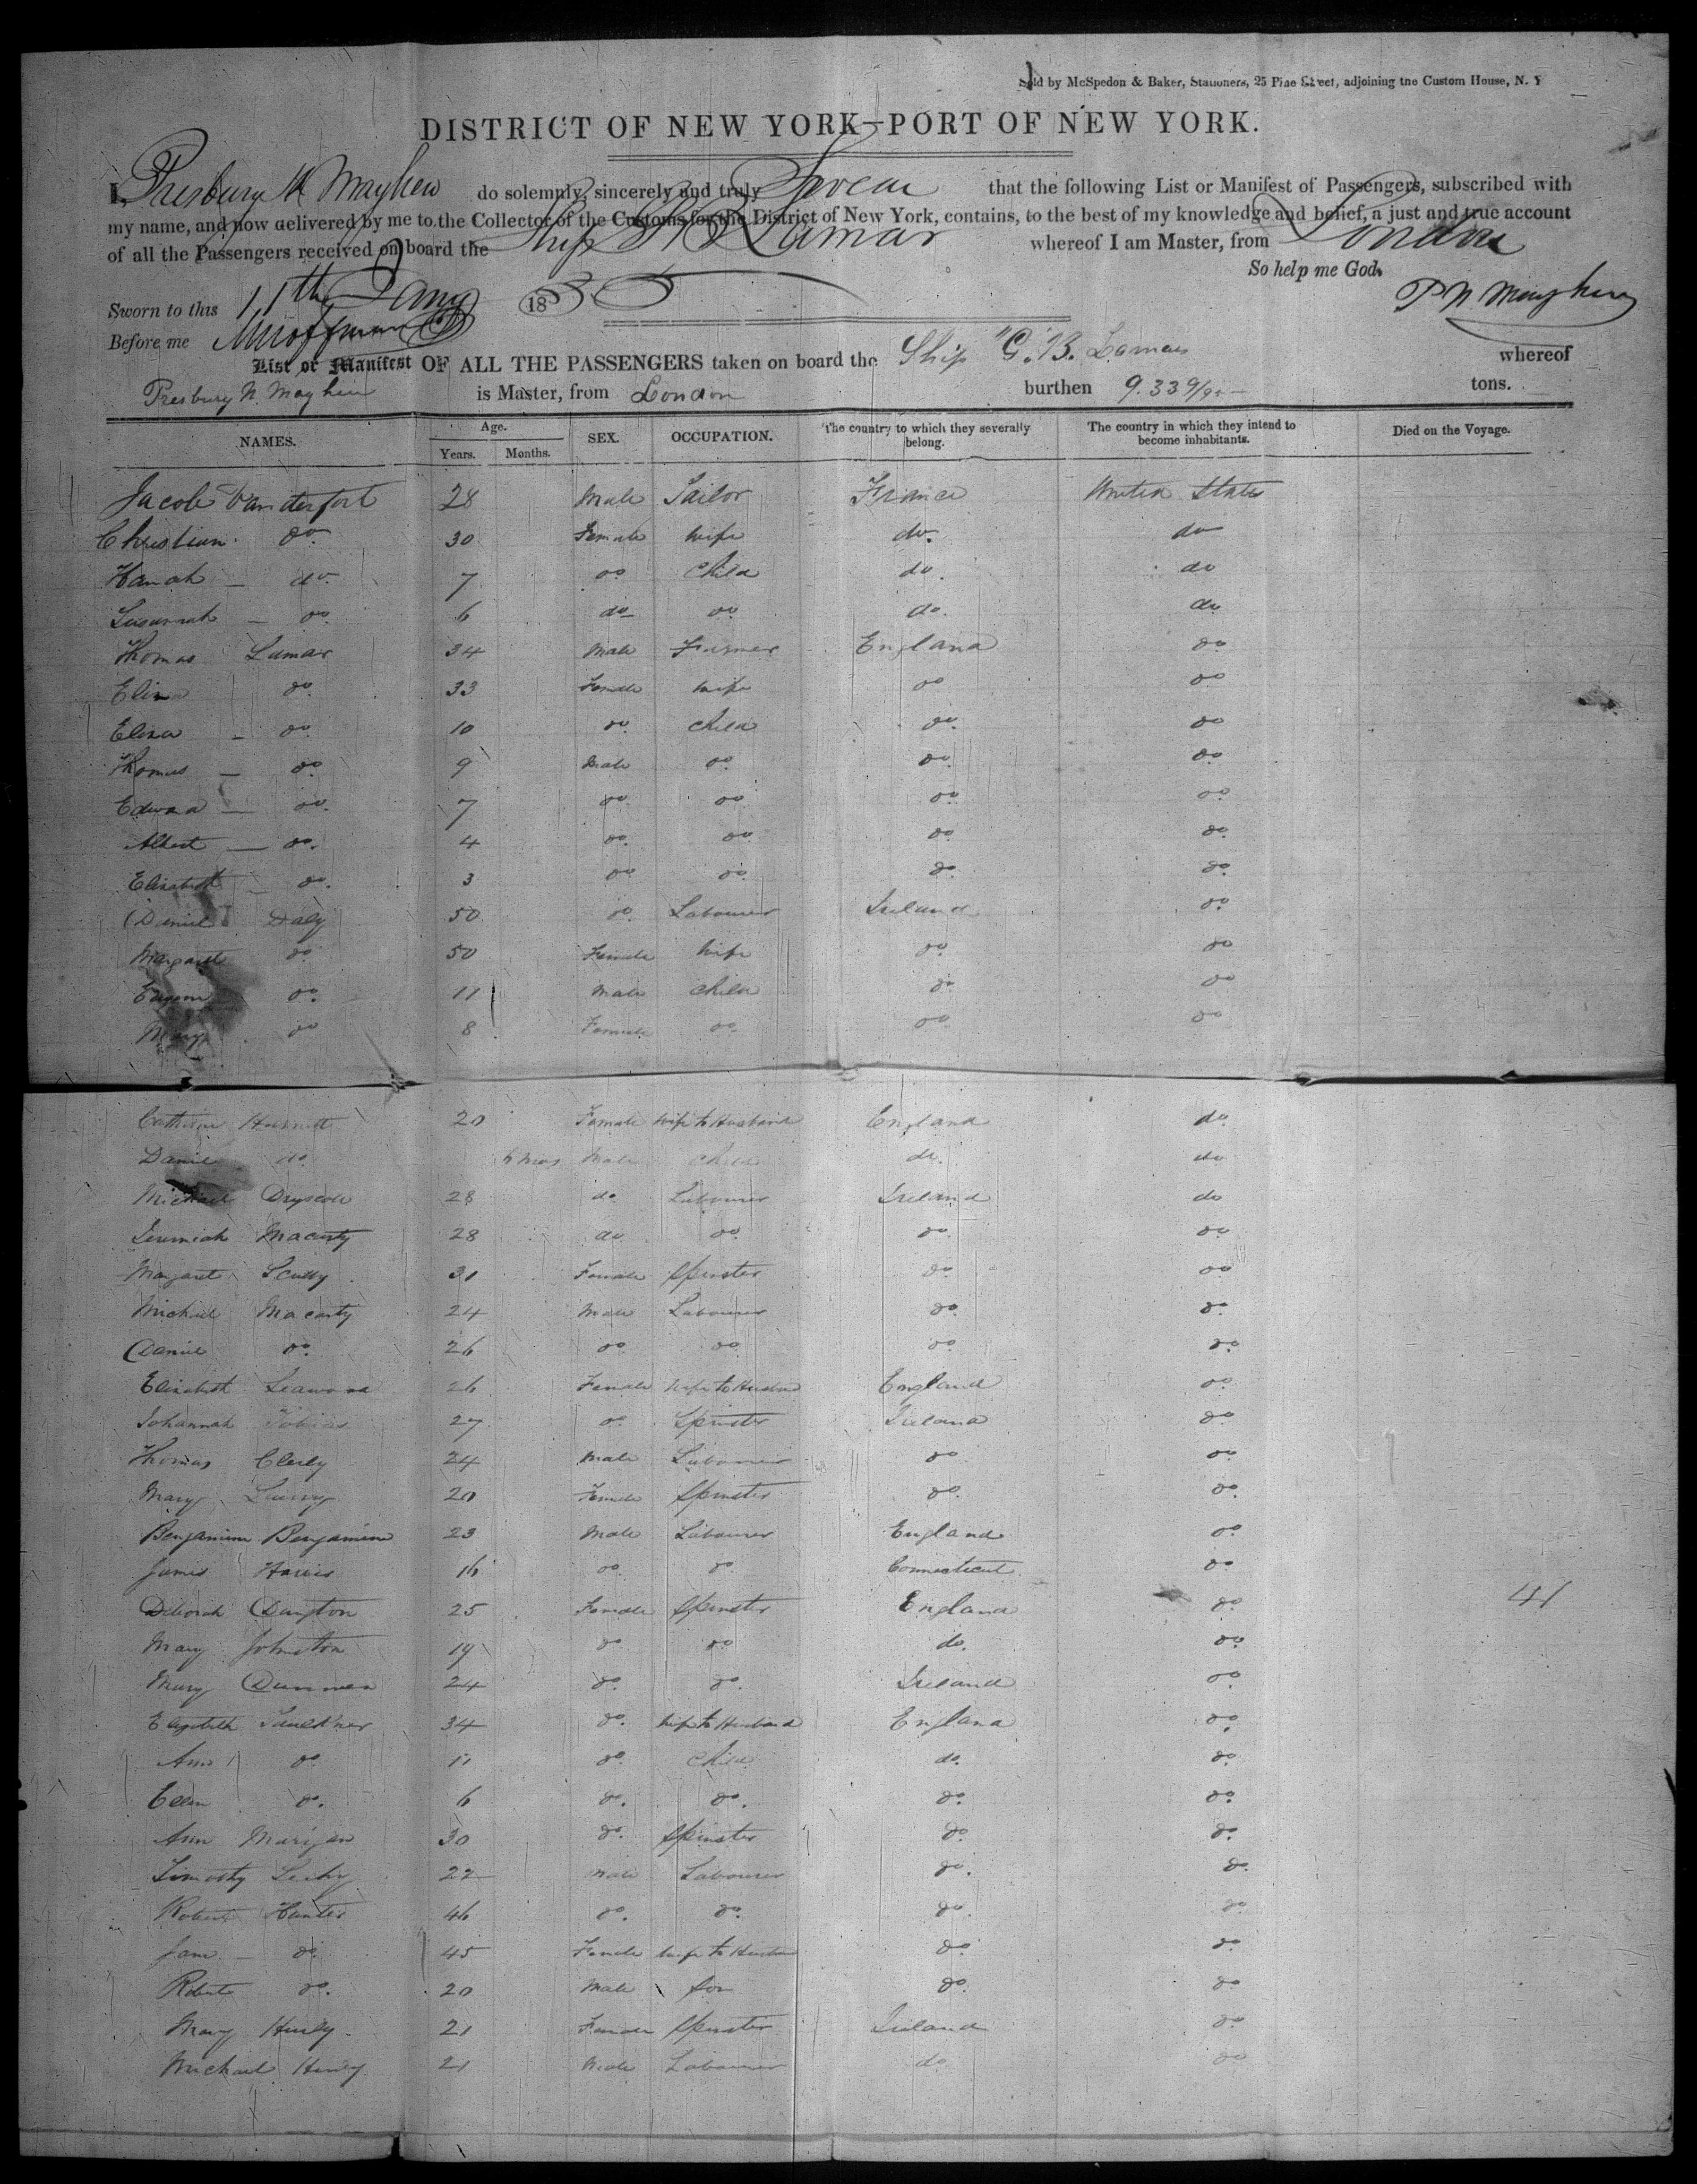 Sold by McSpedon & Baker, Stationers, 25 Pine Street, adjoining the Custom House, N. Y
DISTRICT OF NEW YORK—PORT OF NEW YORK.
I, Presbury N Mayhew do solemnly, sincerely and truly Swear that the following List or Manifest of Passengers, subscribed with
my name, and now delivered by me to the Collector of the Customs for the District of New York, contains, to the best of my knowledge and belief, a just and true account
of all the Passengers received on board the Ship G B Lamar whereof I am Master, from London
So help me God.
P N Mayhew
Sworn to this 11th Jany 185
Before me
List or Manifest OF ALL THE PASSENGERS taken on board the Ship "G. B. Lamar whereof
Presbury N. Mayhew is Master, from London burthen 933 tons.
NAMES. Age. Years. Months. SEX. OCCUPATION. The country to which they severally belong. The country in which they intend to become inhabitants. Died on the Voyage.
Jacob Vanderfort 28 Male Sailor France United States
Christian do. 30 Female Wife do. do
Hanah — do. 7 do Child do. do
Susannah — do. 6 do do. do. do
Thomas Lamar 34 Male Farmer England do
Eliza do. 33 Female Wife do do
Eliza — do. 10 do. Child do. do
Thomas — do. 9 Male do. do. do.
Edward — do. 7 do do do do
Albert — do. 4 do. do do do.
Elizabeth — do. 3 do do. do. do.
Daniel Daly 50 do. Labourer Ireland do
Margaret do 50 Female Wife do. do
Eugene do. 11 Male Child do do
Mary do 8 Female do. do do
Catherine 20 Female Wife to Husband England do.
Daniel do. 6 mos Male Child do. do
Michael Dryscoll 28 do. Labourer Ireland do
Jeremiah Macarty 28 do do. do. do
Margaret Scully 31 Female Spinster do. do
Michael Macarty 24 Male Labourer do. do.
Daniel do. 26 do do do do.
Elizabeth 26 Female Wife to Husband England do.
Johannah Tobin 27 do. Spinster Ireland do.
Thomas 24 Male Labourer do do.
Mary 20 Female Spinster do. do.
Benjamin Benjamin 23 Male Labourer England do
James Harris 16 do. do Connecticut do
Deborah Dayton 25 Female Spinster England do. 41
Mary Johnston 19 do do do. do.
Mary 24 do. do. Ireland do
Elizabeth Faulkner 34 do. Wife to Husband England do.
Ann do 11 do. Child do. do.
Ellen do. 6 do. do. do. do.
Ann 30 do. Spinster do. do.
Timothy 22 Male Labourer do. do.
Robert Hunter 46 do. do. do. do.
Jane — do. 45 Female Wife to Husband do. do.
Robert do. 20 Male Son do. do
Mary Hurly 21 Female Spinster Ireland do
Michael 21 Male Labourer do do